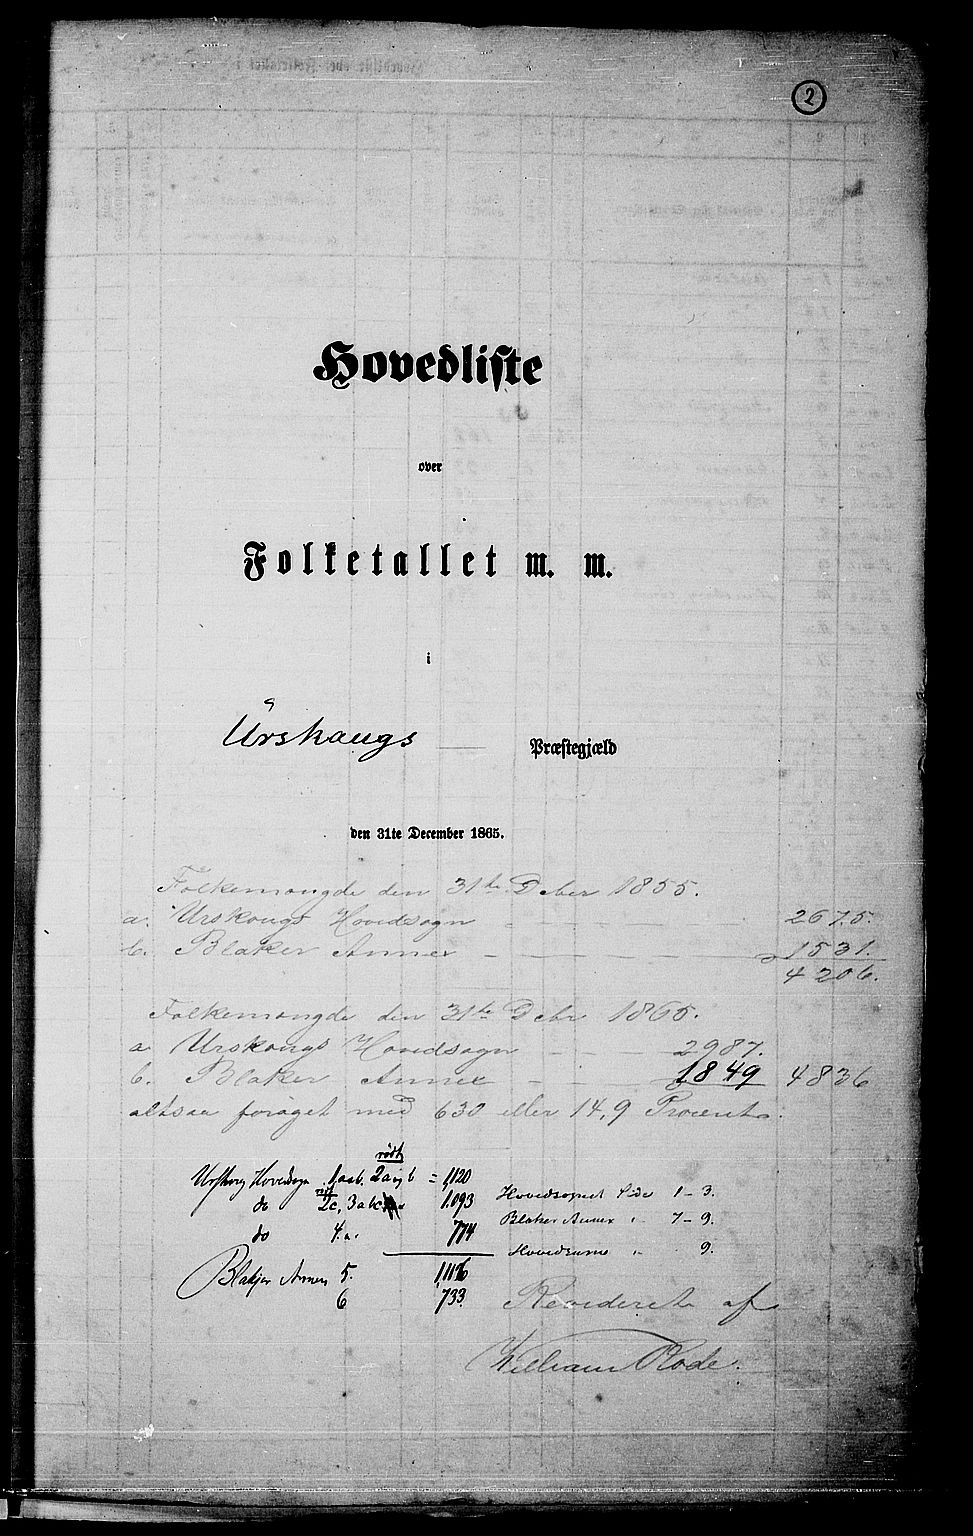 2
Hovedliste
over
Folketallet m. m.
i
Urskougs Præstegjæld
den 31te December 1865.
Folkemængde den 31te Decber 1855.
a. Urskougs Hovedsogn - - - 2675.
b. Blaker Annex - - - - - 1531.
4206.
Folkemængde den 31te Decbr 1865.
a. Urskougs Hovedsogn - - - 2987.
b. Blaker Annex - - 1849 4836
altsaa forøget med 630 eller 14,9 Procent.
rødt
Urskoug Hovedsogn 1 a og b. 2 a og b = 1,120
do 2c, 3 a b c 1.093
do 4. a. 774
Blakjer Annex 5. 1,116
6 733.
Hovedsognet Side 1-3.
Blaker Annex " 7-9.
Hovedsumma " 9.
Revideret af
William Rode.